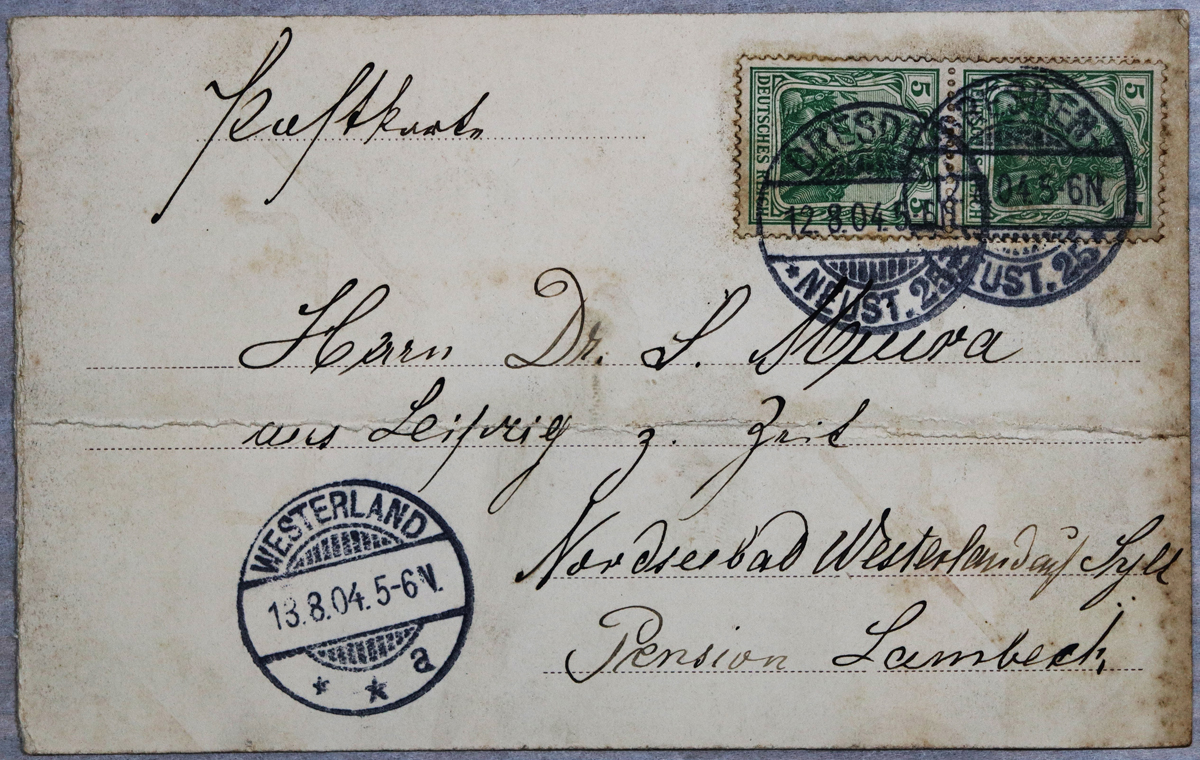 Postkarte
DEUTSCHES REICH 5 5
5
DRESDEN
12.8.04.5-6N
* NEUST. 25
DRESDEN
04.5-6N
NEUST. 25
Herrn Dr. S. Miura
aus Leipzig z. Zeit
Nordseebad Westerland auf Sylt
Pension Lambeck,
WESTERLAND
13.8.04.5-6N.
* * a